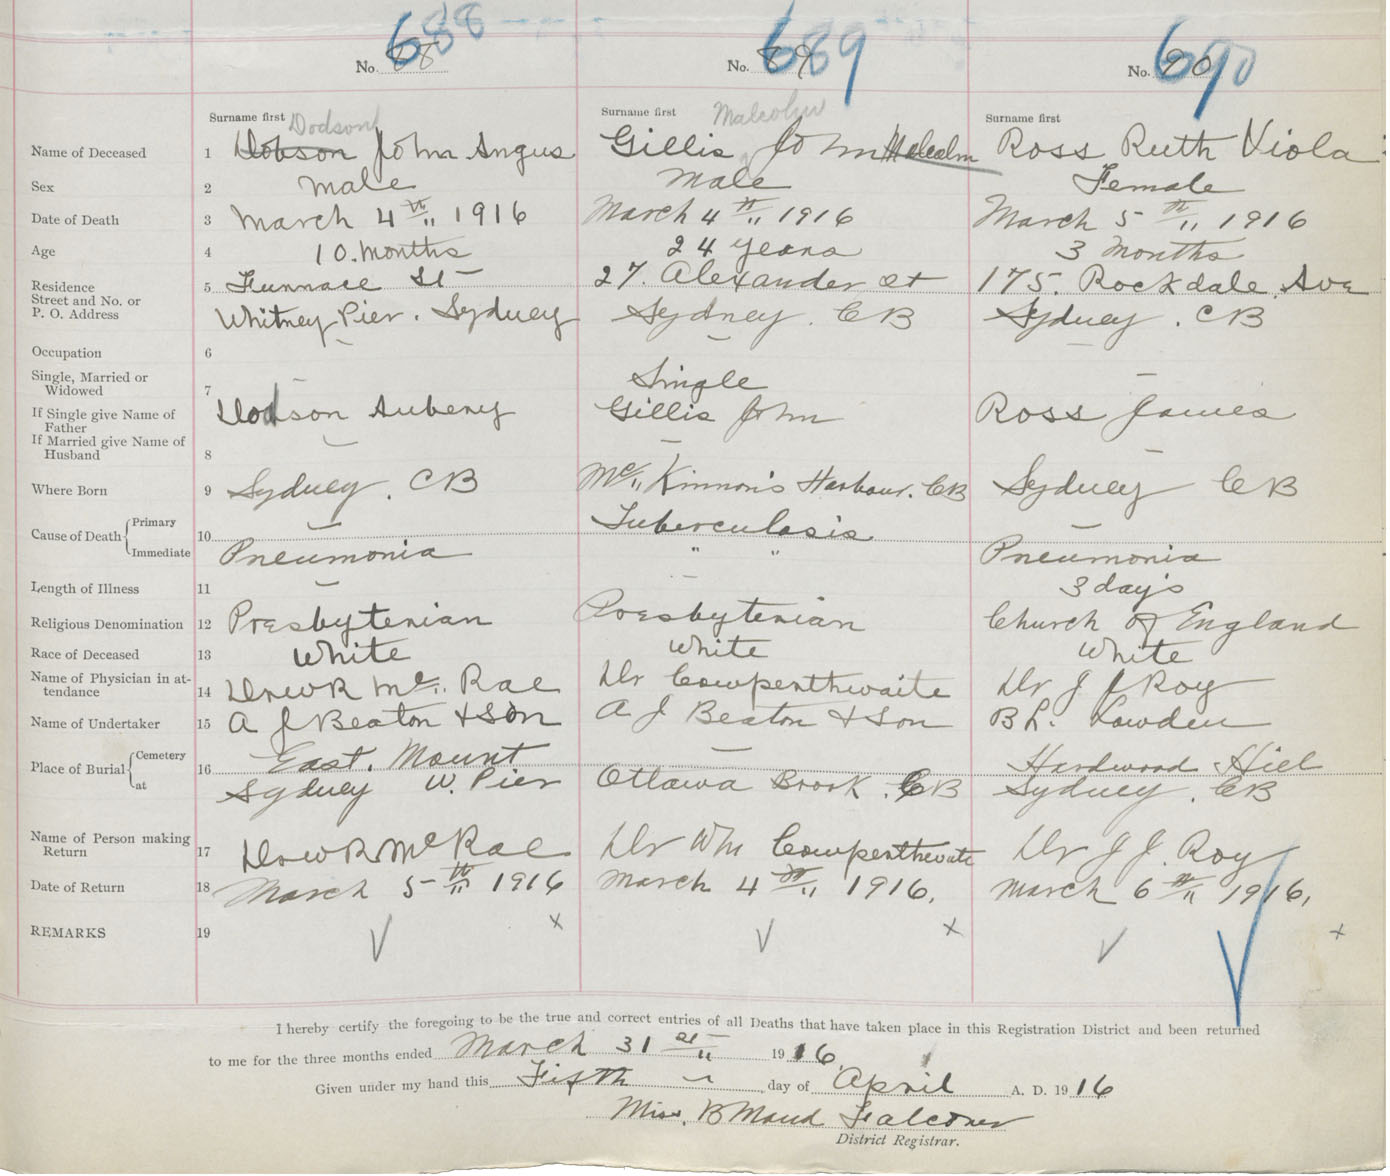 688 689 690
No. 88 No. 89 No. 90
Surname first Dodson Surname first Malcolm Surname first
Name of Deceased 1 Dobson John Angus Gillis John Malcolm Ross Ruth Viola
Sex 2 male male Female
Date of Death 3 March 4th 1916 March 4th 1916 March 5th 1916
Age 4 10 months 24 years 3 months
Residence
Street and No. or
P. O. Address
5 Furnace St 27. Alexander St 175. Rockdale Ave
Whitney Pier. Sydney Sydney. CB Sydney. CB
Occupation 6
Single, Married or
Widowed 7 Single
If Single give Name of
Father Dodson Aubery Gillis John Ross James
If Married give Name of
Husband 8
Where Born 9 Sydney. CB Mc Kinnon's Harbour. CB Sydney CB
Cause of Death { Primary 10 Tuberculosis
Immediate Pneumonia " " Pneumonia
Length of Illness 11 3 days
Religious Denomination 12 Presbyterian Presbyterian Church of England
Race of Deceased 13 White White White
Name of Physician in at-
tendance 14 Drew R Mc Rae Dr Cowperthwaite Dr J J Roy
Name of Undertaker 15 A J Beaton & Son A J Beaton & Son B L. Lowden
Place of Burial { Cemetery 16 East. Mount Hardwood Hill
at Sydney W. Pier Ottawa Brook. CB Sydney. CB
Name of Person making
Return 17 Drew R McRae Dr Wm Cowperthwate Dr J J. Roy
Date of Return 18 March 5th 1916 March 4th 1916. March 6th 1916.
REMARKS 19 x x x
I hereby certify the foregoing to be the true and correct entries of all Deaths that have taken place in this Registration District and been returned
to me for the three months ended March 31st 1916.
Given under my hand this Fifth day of April A. D. 1916
Miss. B Maud Falconer
District Registrar.